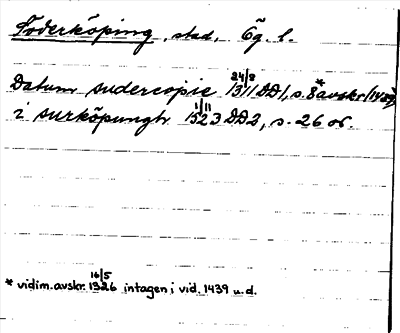 Söderköping, stad, Ög. l.
Datum sudercopie 24/8 1311 DD1, s. 8* avskr (1439)
i surköpungh 1/11 1523 DD2, s. 26 or.
* vidim. avskr. 16/5 1326 intagen i vid. 1439 u.d.